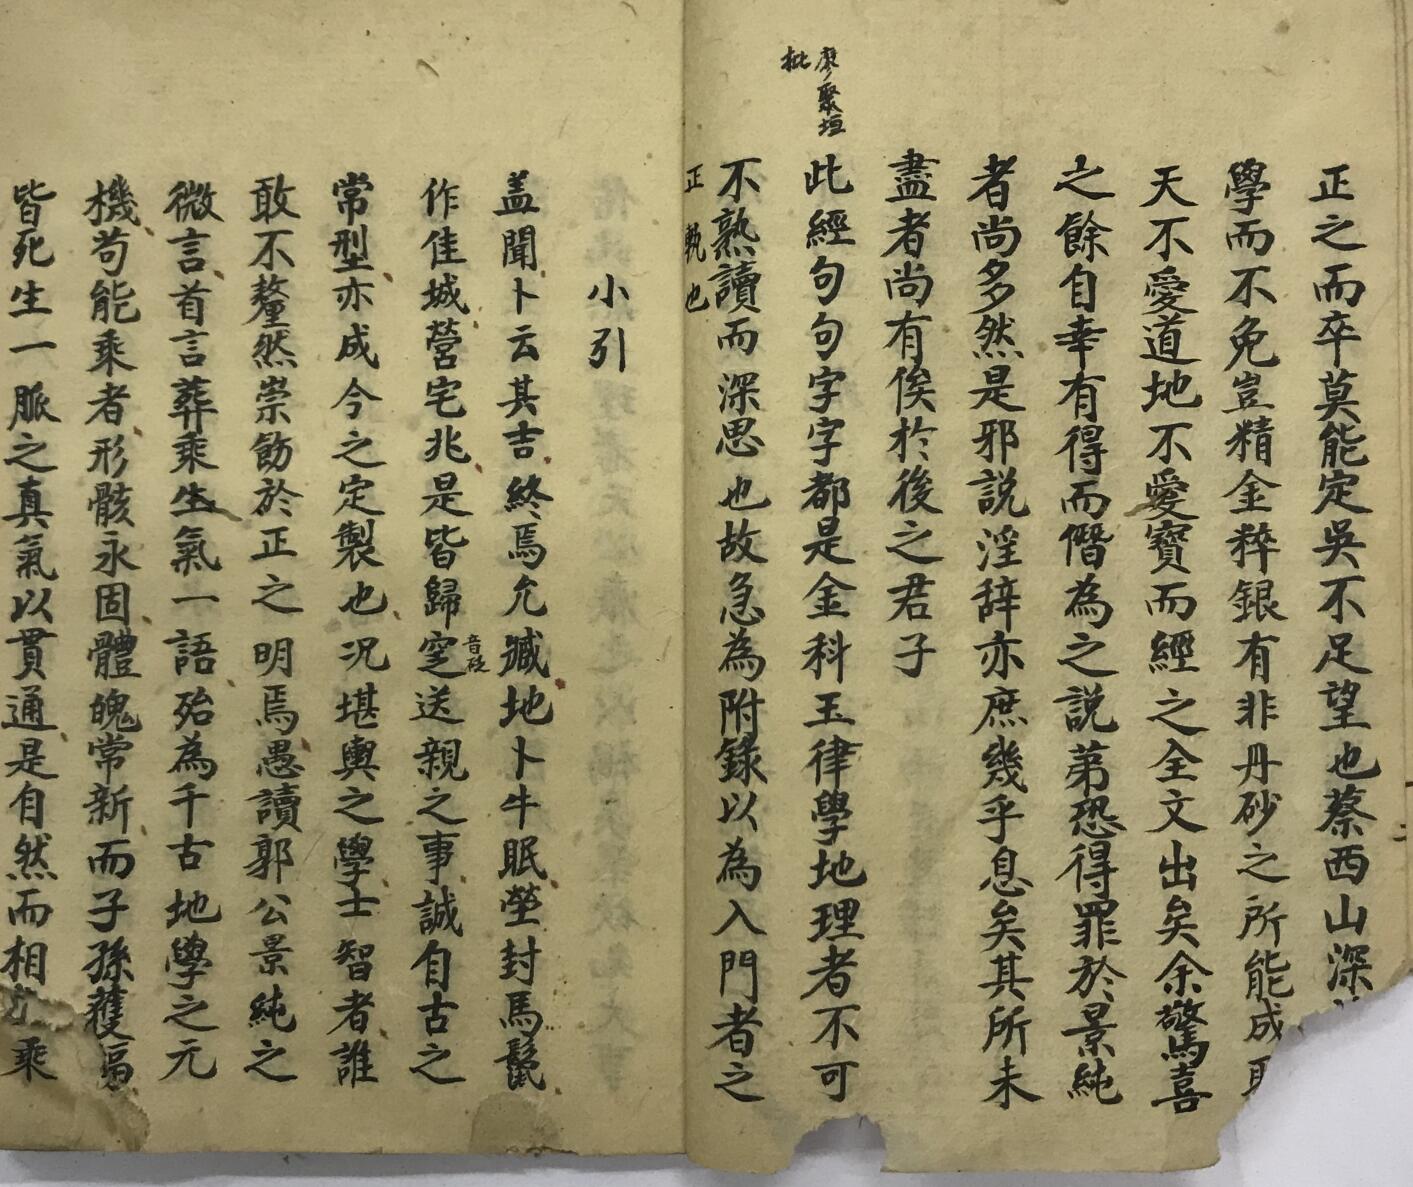 正之而卒莫能定吳不足望也蔡西山深
學而不免豈精金粹銀有非丹砂之所能成
天不愛道地不愛寶而經之全文出矣余驚喜
之餘自幸有得而僭為之説苐恐得罪於景純
者尚多然是邪説淫辞亦庶幾乎息矣其所未
盡者尚有俟於後之君子
廖聚垣
批
此經句句字字都是金科玉律學地理者不可
不熟讀而深思也故急為附錄以為入門者之
正執也
小引
盖聞卜云其吉終焉允臧地卜牛眠塋封馬鬣
作佳城營宅兆是皆歸窆音砭送親之事誠自古之
常型亦成今之定製也况堪輿之學士智者誰
敢不釐然崇飭於正之明焉愚讀郭公景純之
微言首言葬乘生氣一語殆為千古地學之元
機苟能乘者形骸永固體魄常新而子孫獲福
皆死生一脈之真氣以貫通是自然而相乘